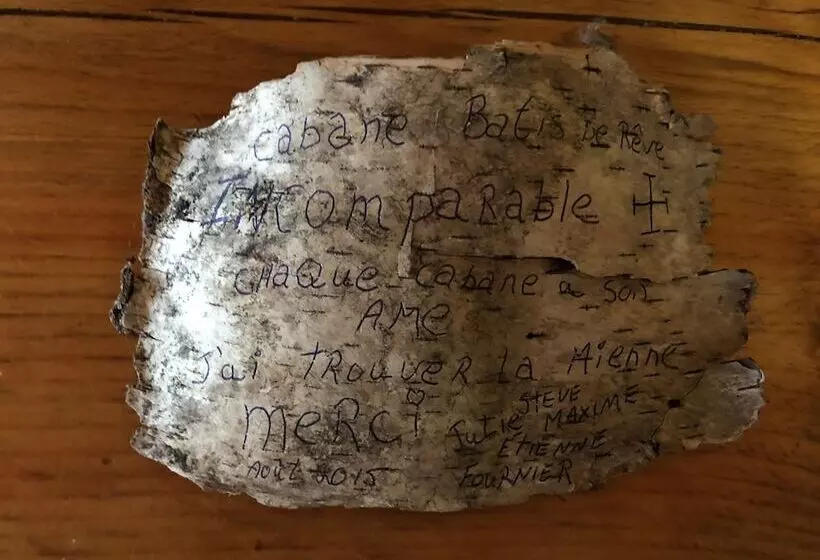 cabane Batis De Rêve
INComparable
CHaQue cabane a son
AMe
J'ai tRouveR La Mienne
MeRci Julie STEVE MAXIME
ETIENNE
AOUT 2015 FOURNIER